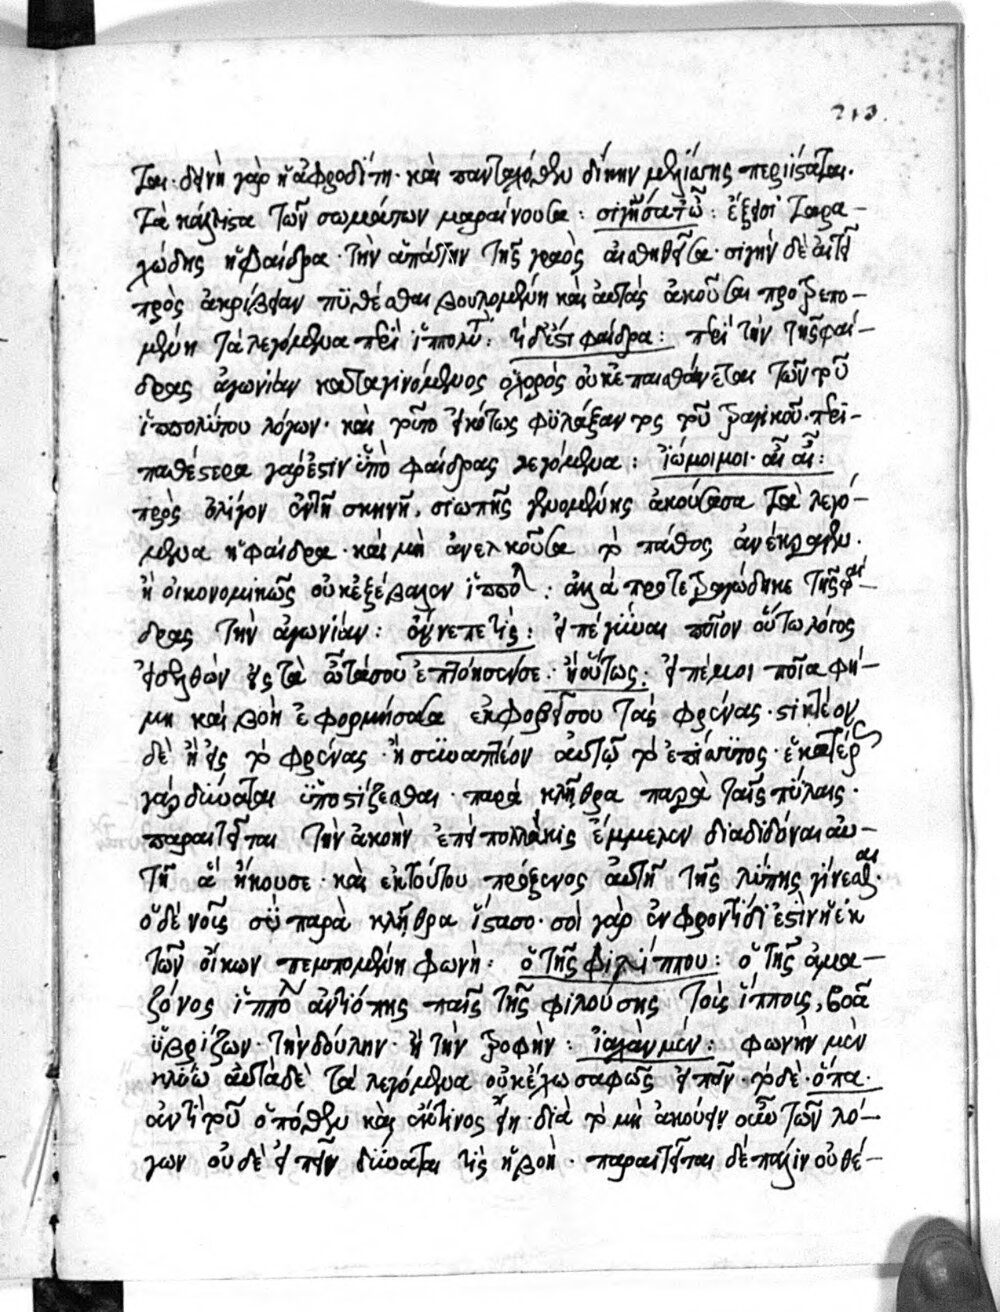 213.
ται· δεινὴ γὰρ ἡ ἀφροδίτη· καὶ πανταχόθεν δίκην μελίσσης περιίσταται·
τὰ κάλλιστα τῶν σωμάτων μαραίνουσα : σιγήσατ' ὦ : ἔξεισι ταρα-
χώδης ἡ φαίδρα· τὴν ἀπάτην τῆς γραὸς αἰσθηθεῖσα· σιγὴν δὲ αἰτεῖ
πρὸς ἀκρίβειαν πυθέσθαι βουλομένη καὶ αὐτὰς ἀκοῦσαι προτρεπο-
μένη τὰ λεγόμενα περὶ ἱππολύτ : τί δ' ἐστὶ φαίδρα : περὶ τὴν τῆς φαί-
δρας ἀγωνίαν καταγινόμενος ὁ χορὸς οὐκ ἐπαισθάνεται τῶν τοῦ
ἱππολύτου λόγων· καὶ τοῦτο εἰκότως φυλάξαντος τοῦ τραγικοῦ· περι-
παθέστερα γάρ ἐστιν ὑπὸ φαίδρας λεγόμενα : ἰώ μοι μοι· αἶ αἶ :
πρὸς ὀλίγον ἐν τῇ σκηνῇ, σιωπῆς γενομένης ἀκούσασα τὰ λεγό-
μενα ἡ φαίδρα· καὶ μὴ ἀνελκοῦσα τὸ πάθος ἀνέκραγεν·
ἢ οἰκονομικῶς οὐκ ἐξέβαλον ἱππόλ· ἀλλὰ προτετραγώδηκε τῆς φαί
δρας τὴν ἀγωνίαν : ὄγνεπε τίς : εἰπὲ γύναι ποῖον οὕτω λόγος
εἰσελθὼν εἰς τὰ ὦτά σου ἐπτόησέ σε : ἢ οὕτως : εἰπέ μοι ποῖα φή-
μη καὶ βοὴ ἐφορμήσασα ἐκφοβεῖ σου τὰς φρένας· στικτέον
δὲ ἢ εἰς τὸ φρένας· ἢ συναπτέον αὐτῷ τὸ ἐπίσσυτος· ἑκατέρως
γὰρ δύναται ὑποστίζεσθαι· παρὰ κλῇθρα παρὰ ταῖς πύλαις·
παραιτεῖται τὴν ἀκοὴν ἐπεὶ πολλάκις ἔμμελεν διαδιδόναι αὐ-
τῇ ἃ ἤκουσε· καὶ ἐκ τούτου πρόξενος αὐτῇ τῆς λύπης γίνεσθαι·
ὁ δὲ νοῦς σὺ παρὰ κλῇθρα ἵστασο· σοὶ γὰρ ἐν φροντίδι ἐστὶν ἡ ἐκ
τῶν οἴκων πεμπομένη φωνή : ὁ τῆς φιλίππου : ὁ τῆς ἀμα-
ζόνος ἱππο ἀντιόπης παῖς τῆς φιλούσης τοὺς ἵππους, βοᾷ
ὑβρίζων· τὴν δούλην· ἢ τὴν τροφήν : ἰαχὰν μέν : φωνὴν μὲν
κλύω αὐτὰ δὲ τὰ λεγόμενα οὐκ ἔχω σαφῶς εἰπεῖν· τὸ δὲ· ὅπα·
ἀντὶ τοῦ ὁπόθεν καὶ ἐκ τίνος εἴη· διὰ τὸ μὴ ἀκούειν οὖν τῶν λό-
γων οὐδὲ εἰπεῖν δύναται τίς ἡ βοή· παραιτεῖται δὲ πάλιν οὐ θέ-